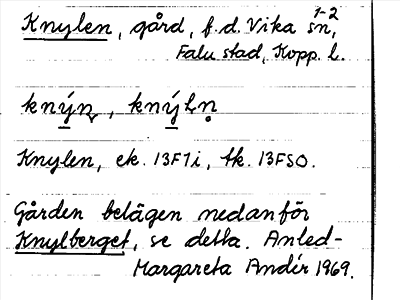 Knylen, gård, f.d. Vika sn, 1-2
Falu stad, Kopp. l.
knýn, knýln̥
Knylen, ek. 13F7i, tk. 13FSO.
Gården belägen nedanför
Knylberget, se detta. Anled-
Margareta Andér 1969.